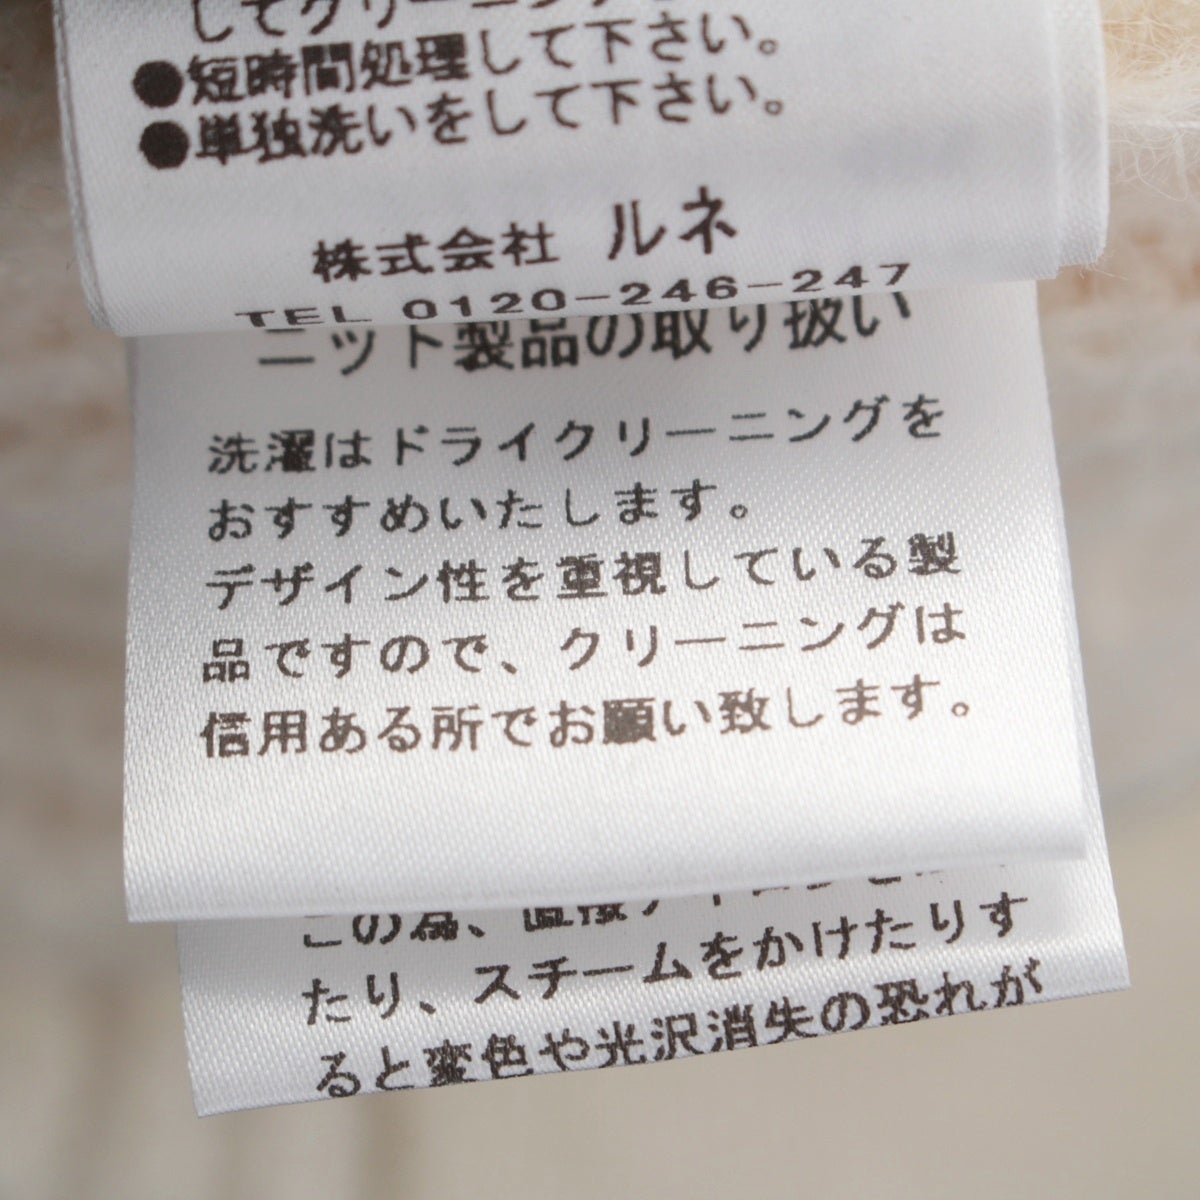 してクリーニング
●短時間処理して下さい。
●単独洗いをして下さい。
株式会社 ルネ
TEL 0120-246-247
ニット製品の取り扱い
洗濯はドライクリーニングを
おすすめいたします。
デザイン性を重視している製
品ですので、クリーニングは
信用ある所でお願い致します。
この為、直接アイロンを
たり、スチームをかけたりす
ると変色や光沢消失の恐れが